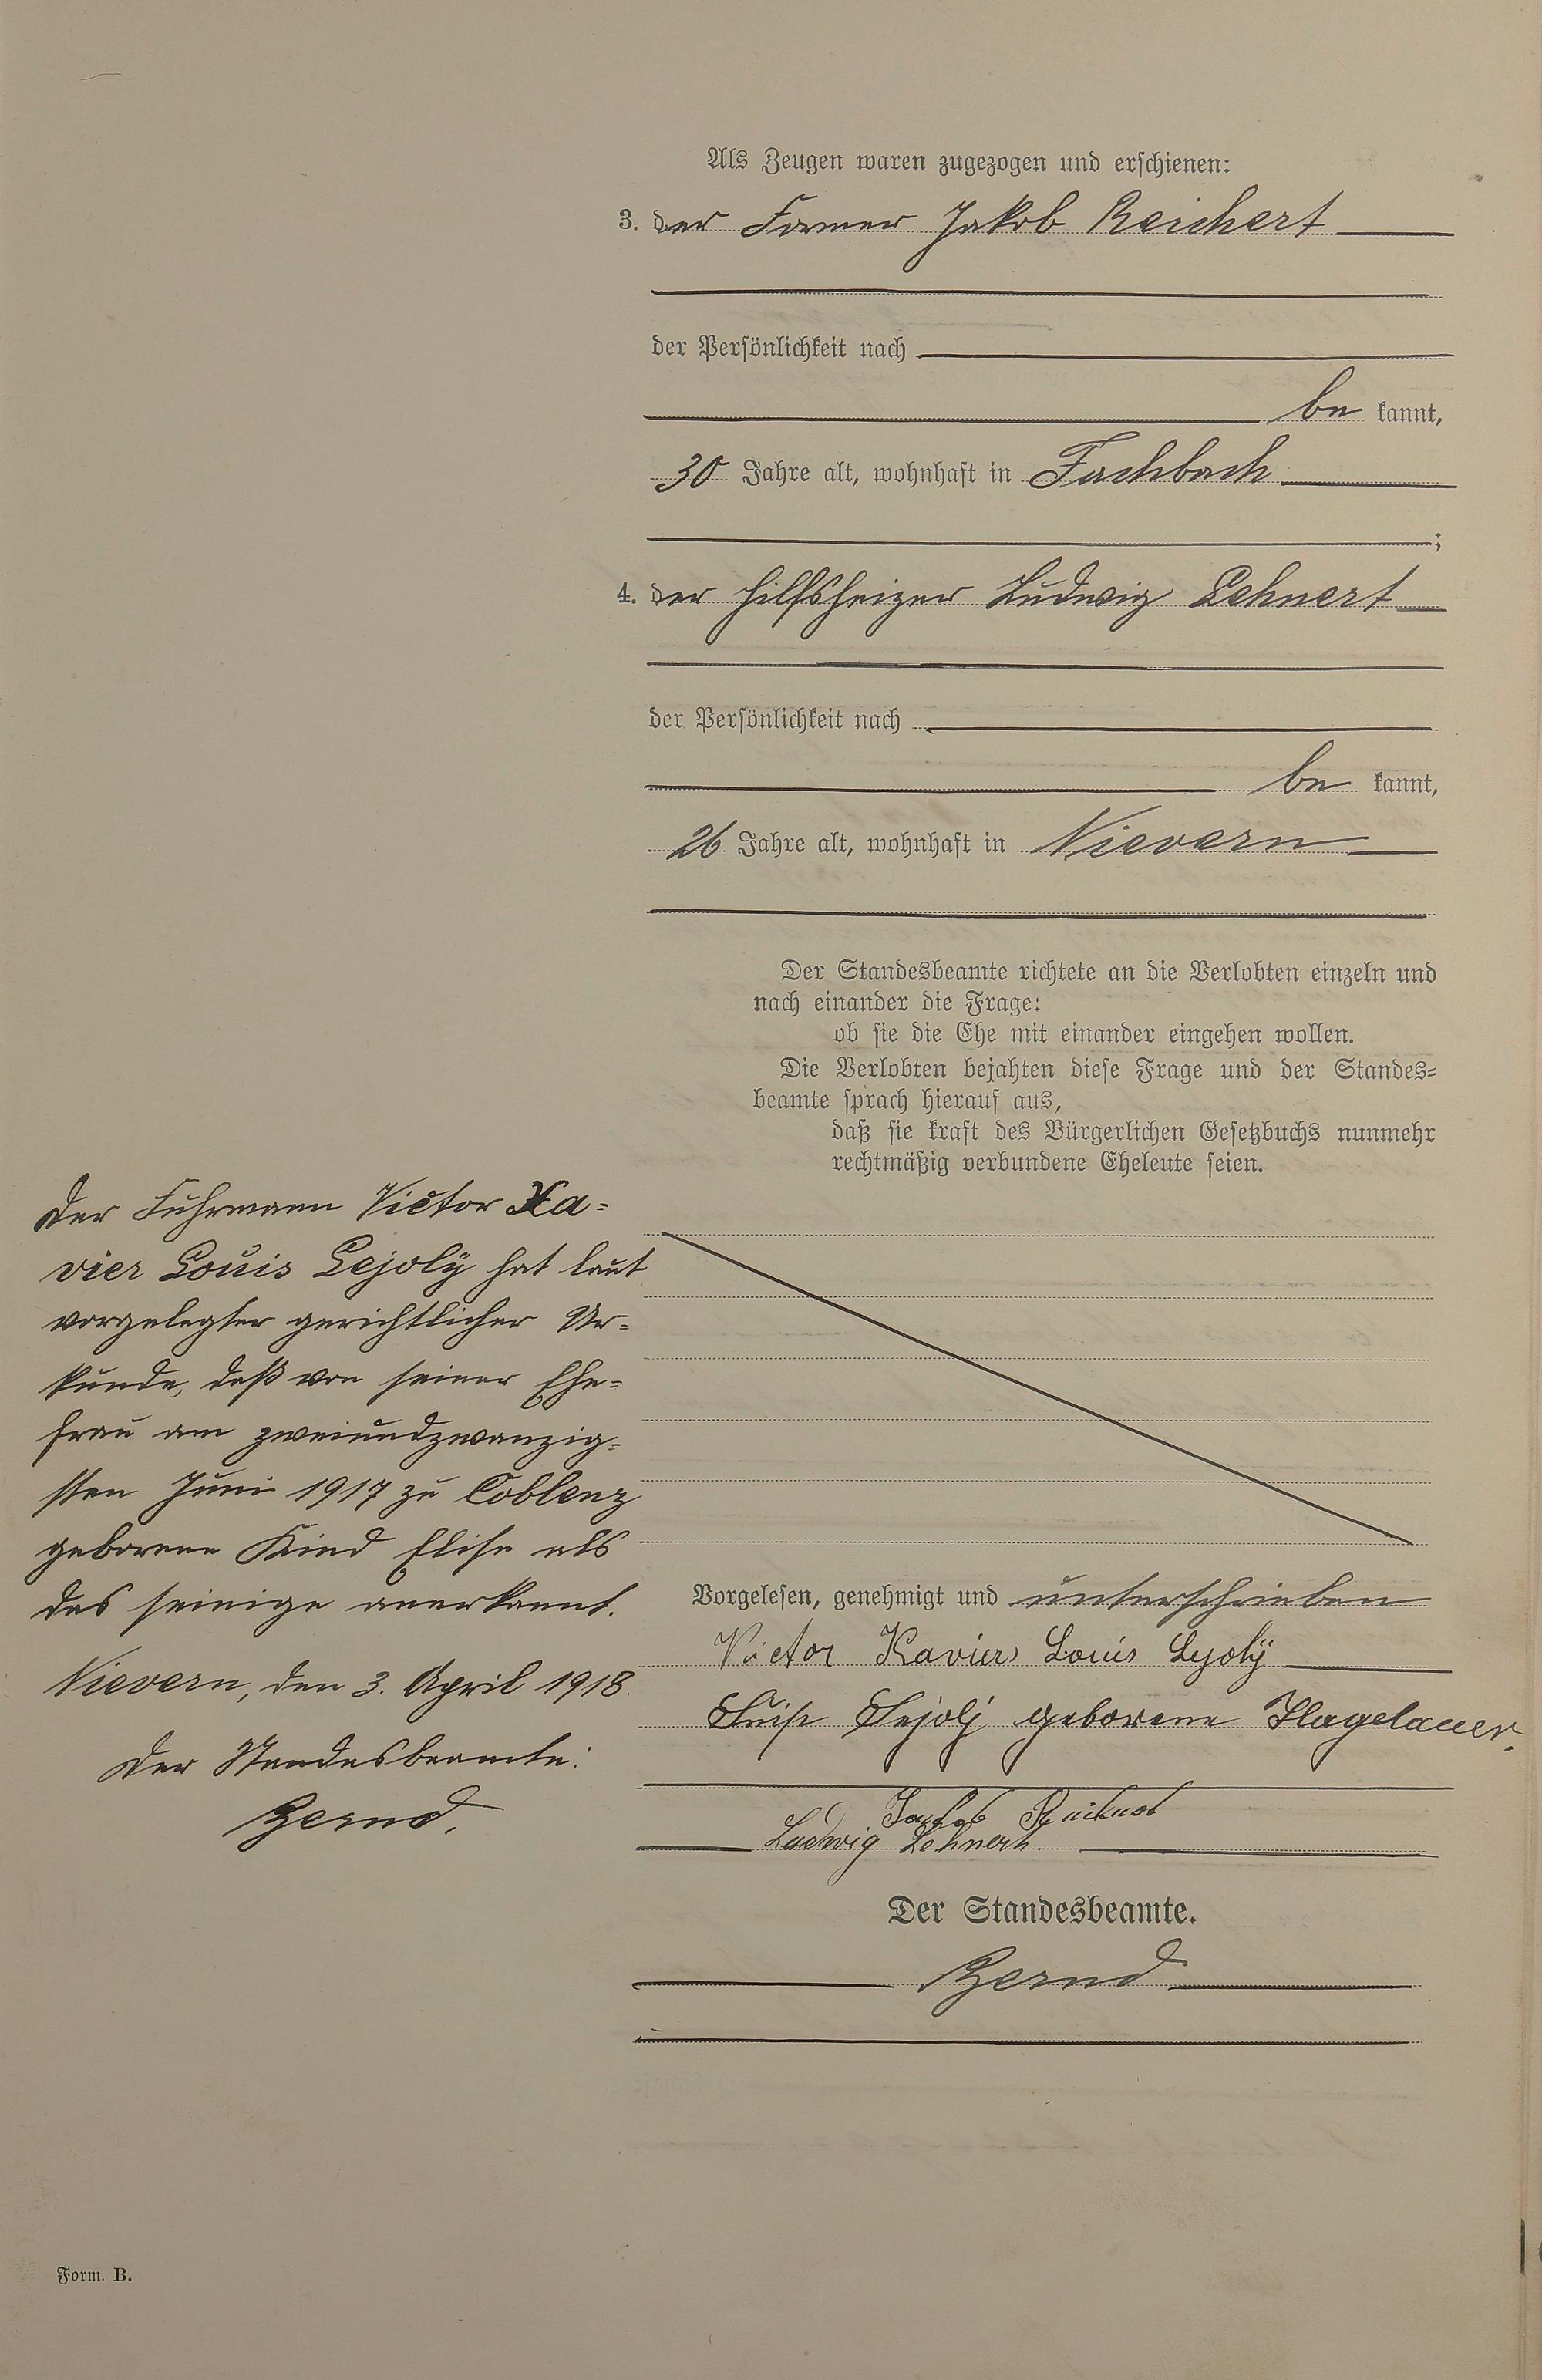 Als Zeugen waren zugezogen und erschienen:
3. der Former Jakob Reichert
der Persönlichkeit nach
be kannt,
30 Jahre alt, wohnhaft in Fachbach
;
4. der Hilfsheizer Ludwig Lehnert
der Persönlichkeit nach
be kannt,
26 Jahre alt, wohnhaft in Nievern
Der Standesbeamte richtete an die Verlobten einzeln und
nach einander die Frage:
ob sie die Ehe mit einander eingehen wollen.
Die Verlobten bejahten diese Frage und der Standes-
beamte sprach hierauf aus,
daß sie kraft des Bürgerlichen Gesetzbuchs nunmehr
rechtmäßig verbundene Eheleute seien.
Der Fuhrmann Victor Xa-
vier Louis Lejolÿ hat laut
vorgelegter gerichtlicher Ur-
kunde, daß von seiner Ehe-
frau am zweiundzwanzig-
sten Juni 1917 zu Coblenz
geborene Kind Elise als
das seinige anerkannt.
Nievern, den 3. April 1918.
Der Standesbeamte:
Bernd.
Vorgelesen, genehmigt und unterschrieben
Victor Xavier Louis Lejolÿ
Luise Lejolj geborene Hagelauer.
Jakob Reichert
Ludwig Lehnert.
Der Standesbeamte.
Bernd
Form. B.